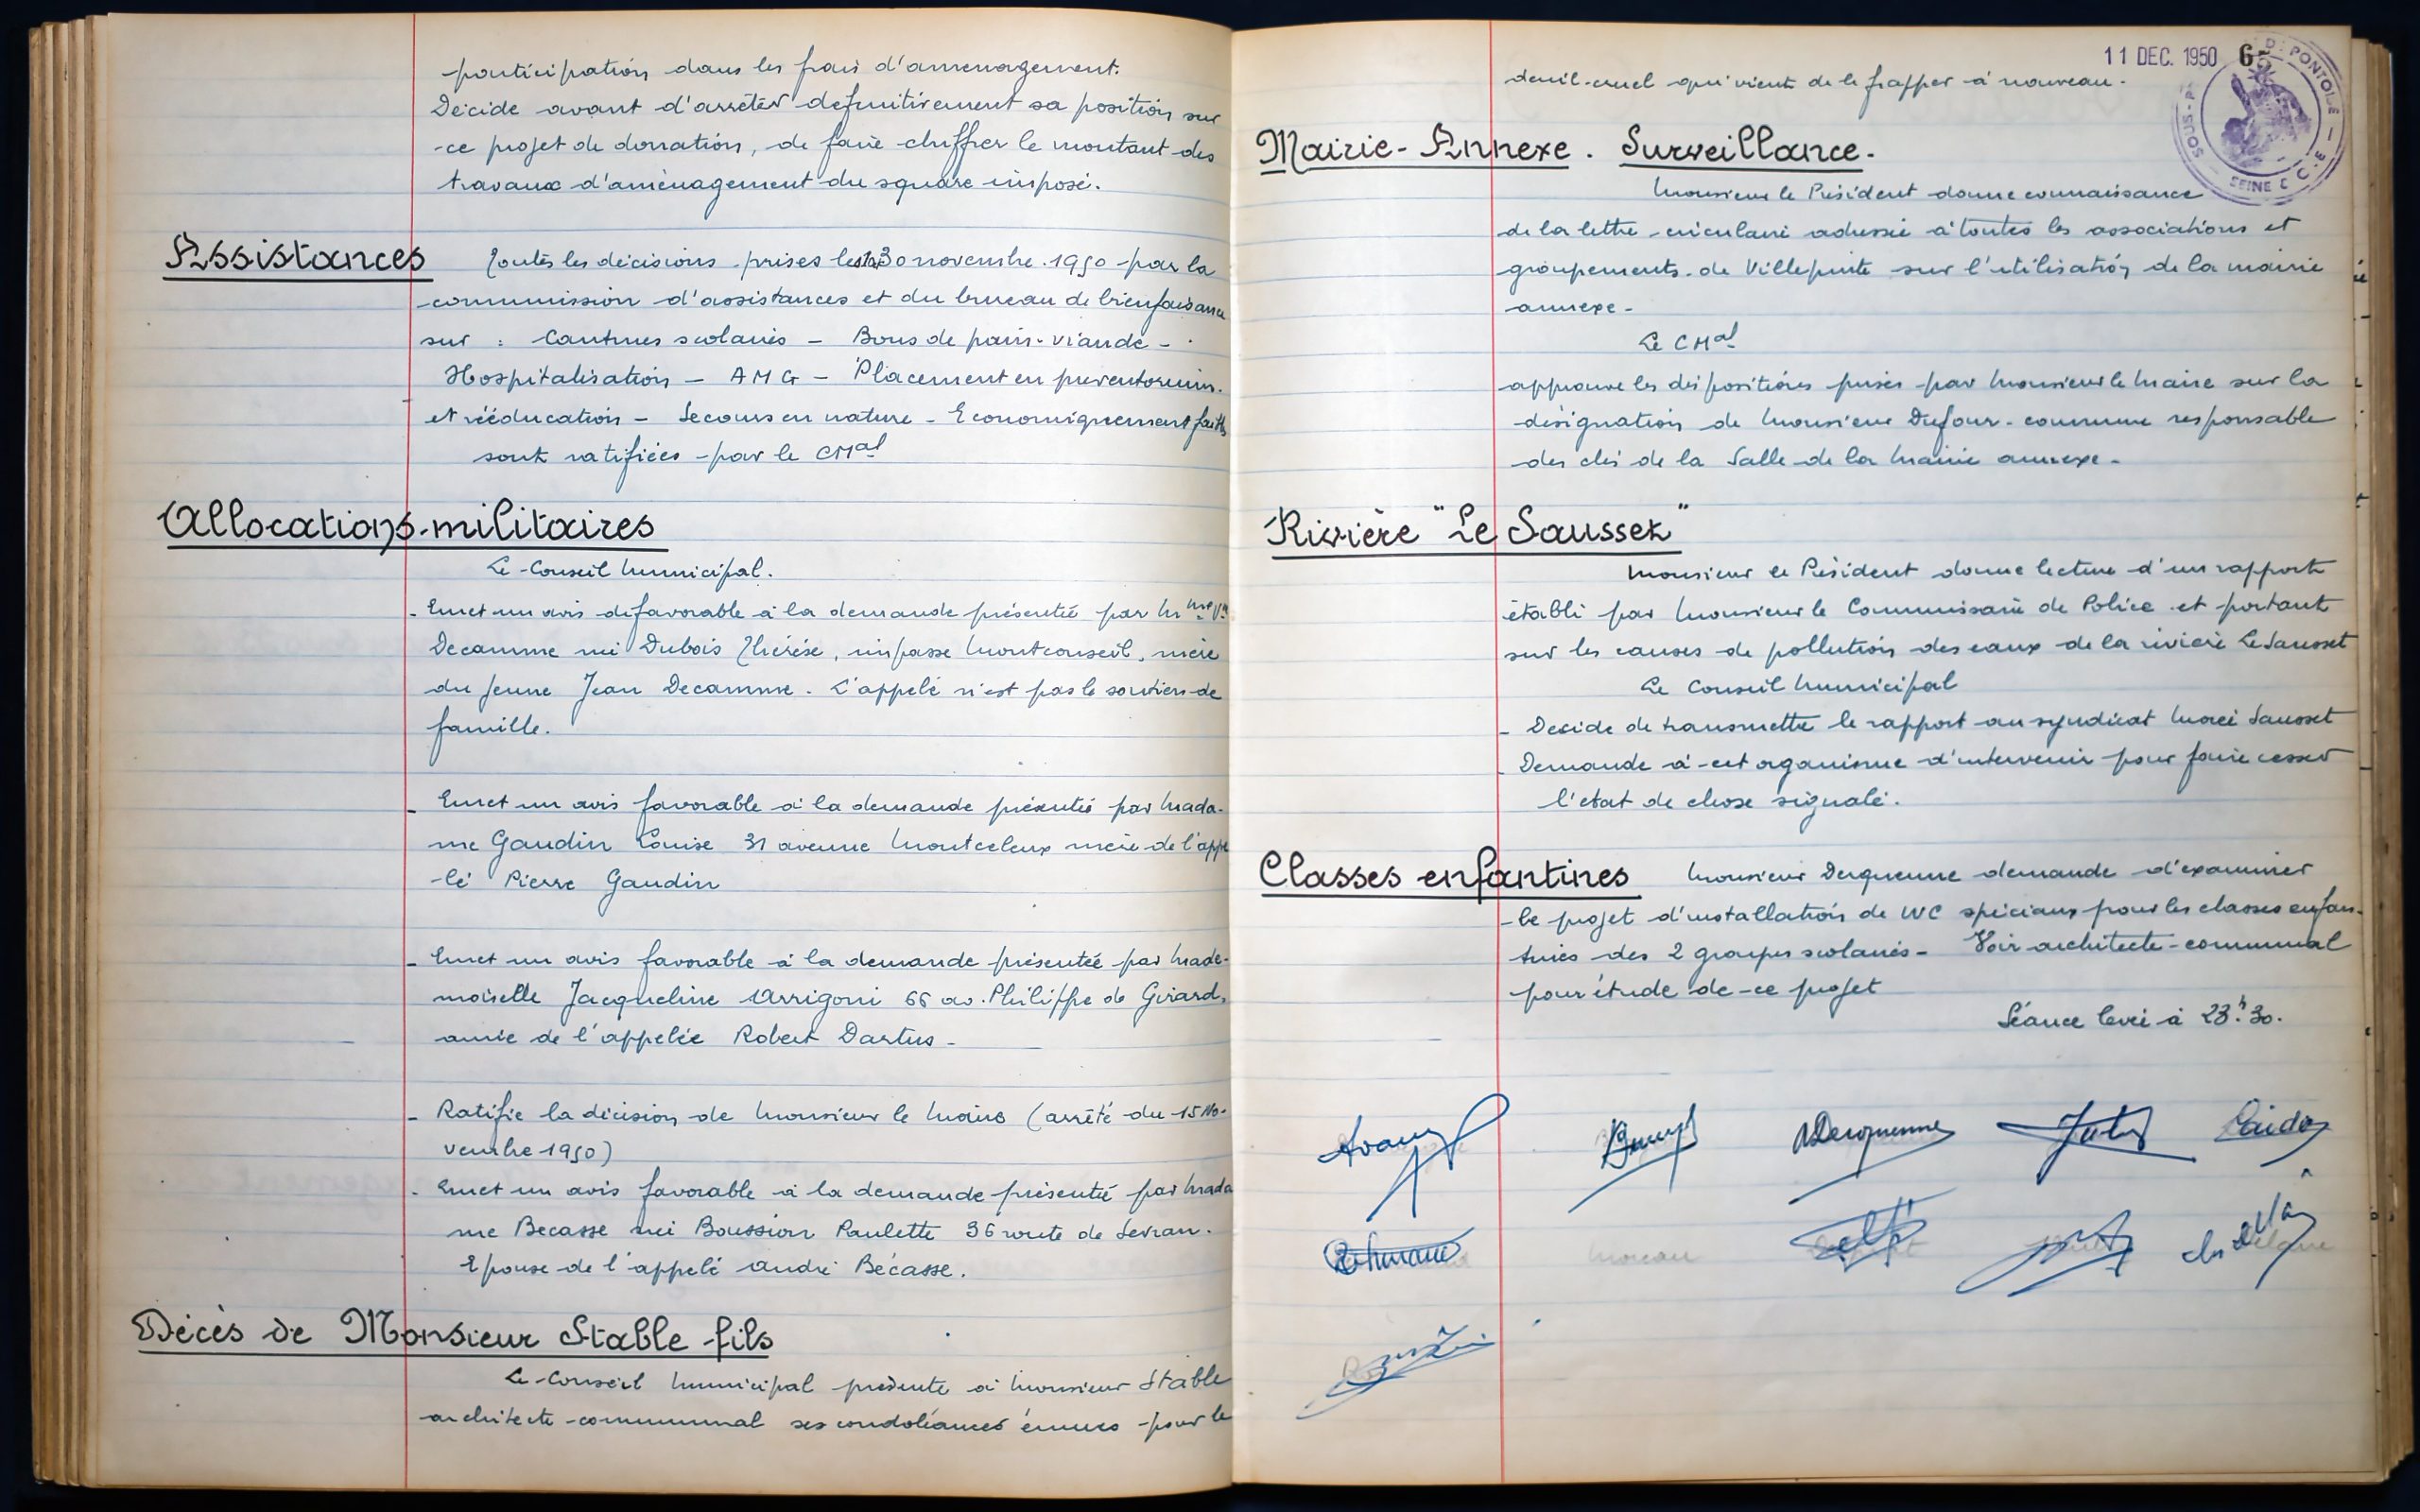 participation dans les frais d'aménagement.
Décide avant d'arrêter définitivement sa position sur
ce projet de donation, de faire chiffrer le montant des
travaux d'aménagement du square imposé.
Assistances
Toutes les décisions prises les 30 novembre 1950 par la
commission d'assistances et du bureau de bienfaisance
sur : Cantines scolaires - Bons de pain-viande -
Hospitalisation - AMG - Placement en preventorium
et rééducation - Secours en nature - Economiquement faibles
sont ratifiées par le CMal
Allocations militaires
Le Conseil Municipal.
- Emet un avis défavorable à la demande présentée par Mme Ve
Decamme née Dubois Thérèse, impasse Montconseil, mère
du jeune Jean Decamme. L'appelé n'est pas le soutien de
famille.
- Emet un avis favorable à la demande présentée par Mada-
me Gaudin Louise 31 avenue Montceleux mère de l'appe
-lé Pierre Gaudin
- Emet un avis favorable à la demande présentée par Made-
moiselle Jacqueline Arrigoni 66 av. Philippe de Girard,
amie de l'appelée Robert Dartus -
- Ratifie la décision de Monsieur le Maire (arrêté du 15 No-
vembre 1950)
- Emet un avis favorable à la demande présentée par Mada
me Becasse née Boussion Paulette 36 route de Sevran.
Epouse de l'appelé André Bécasse.
Décès de Monsieur Stable fils
Le Conseil Municipal présente à Monsieur Stable
architecte communal ses condoléances émues pour le
11 DEC. 1950 65
SOUS-P D PONTOISE - SEINE
deuil cruel qui vient de le frapper à nouveau.
Mairie-Annexe. Surveillance.
Monsieur le Président donne connaissance
de la lettre circulaire adressée à toutes les associations et
groupements de Villepinte sur l'utilisation de la mairie
annexe -
Le CMal
approuve les dispositions prises par Monsieur le Maire sur la
désignation de Monsieur Dufour comme responsable
des clés de la Salle de la Mairie annexe -
Rivière "Le Sausset"
Monsieur le Président donne lecture d'un rapport
établi par Monsieur le Commissaire de Police et portant
sur les causes de pollution des eaux de la rivière Le Sausset
Le Conseil Municipal
- Decide de transmettre le rapport au syndicat Morée Sausset
- Demande à cet organisme d'intervenir pour faire cesser
l'état de chose signalé.
Classes enfantines
Monsieur Derquenne demande d'examiner
le projet d'installation de WC spéciaux pour les classes enfan-
tines des 2 groupes scolaires - Voir architecte communal
pour étude de ce projet
Séance levée à 23h 30.
Derquenne
Moreau